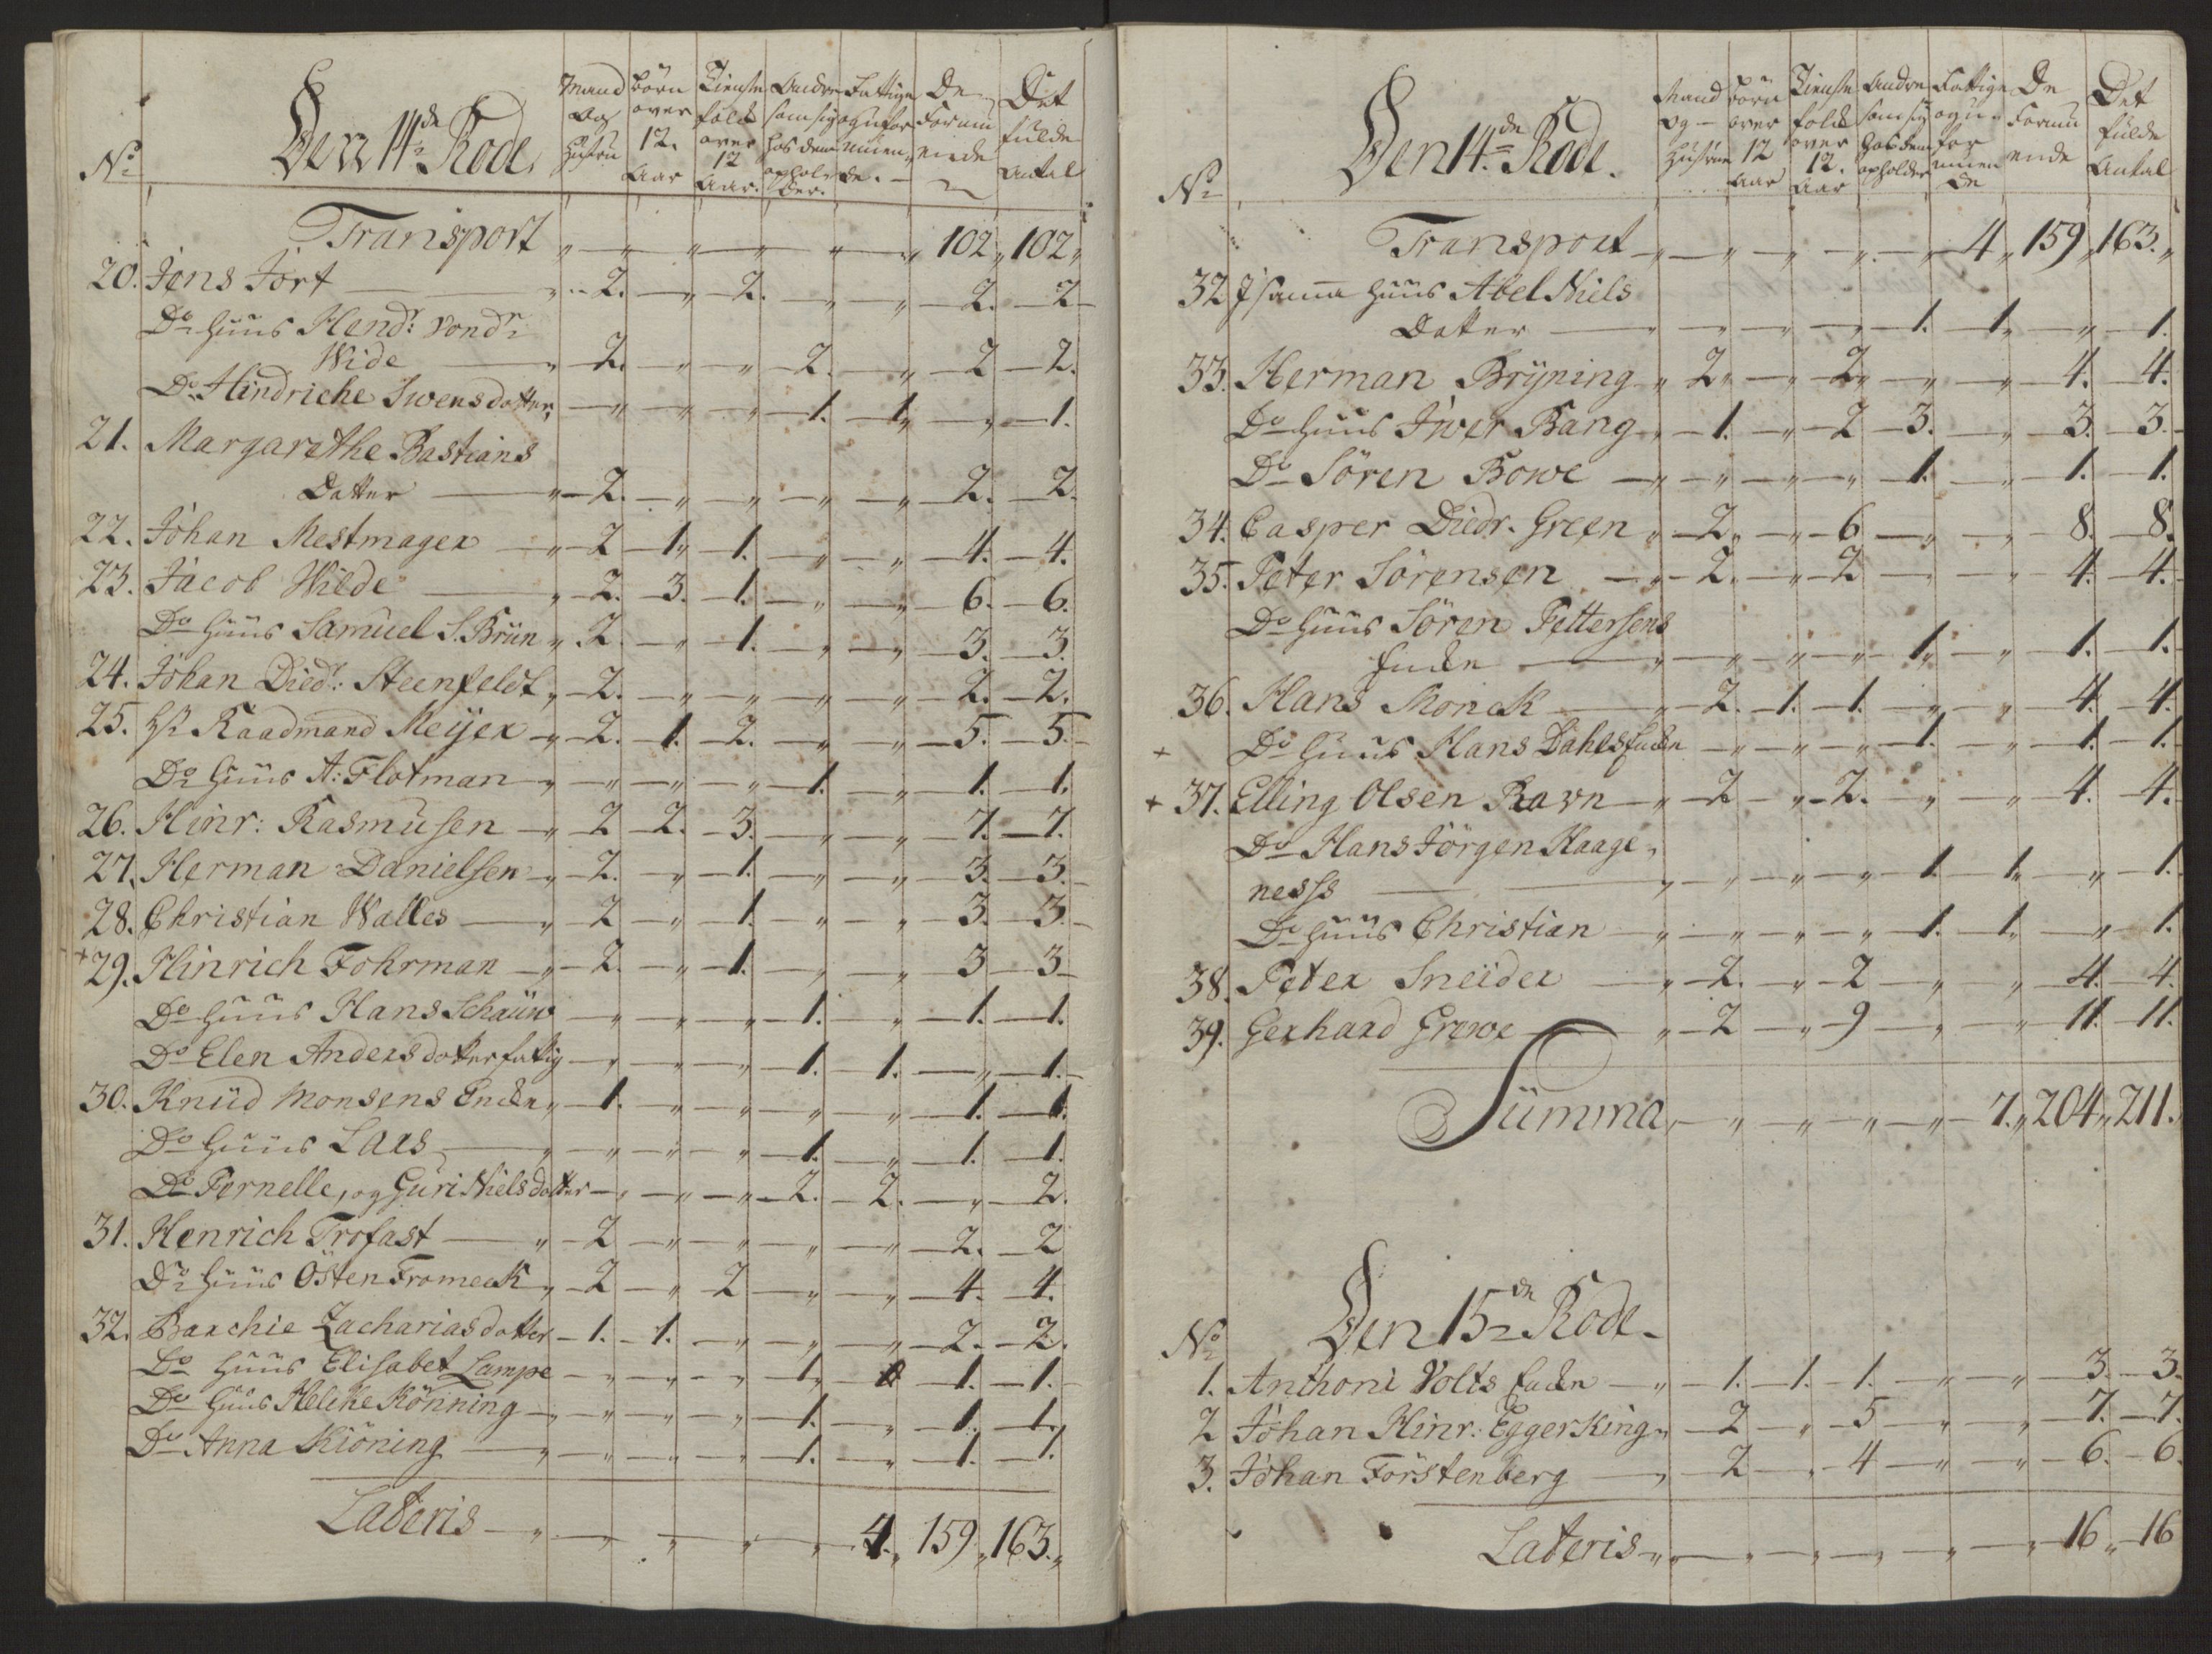 No Den 14de Rode. Mand og Hustru Börn over 12. Aar Tieneste folk over 12 Aar. Andre som sig hos dem opholder. Fattige og ufor muen de. De Formu ende Det fulde Antal
Transport „ — „ — „ — „ — „ — „ 102 „ 102 „
20. Jens Jort — — „ 2. — „ 2. — „ — „ — 2. — 2 —
Do huus Hendr: vondr
Wide — „ 2. — „ — „ 2. — „ — 2 — 2.
Do Hindriche Iwensdotter, — „ — „ — „ 1. — 1. — „ — 1.
21. Margarethe Bastians
Datter — „ 2. — „ — „ — „ — „ — 2. — 2.
22. Johan Mestmager — „ 2 — 1. — 1. — „ — „ — 4. — 4.
23. Jacob Wilde — „ 2. — 3. — 1. — „ — „ — 6. — 6.
Do huus Samuel S. Brün „ 2. — „ 1. — „ — „ — 3. — 3.
24. Johan Diedr: Steenfeldt „ 2. — „ — „ — „ — „ — 2. — 2.
25. Hr Raadmand Meijer — „ 2. — 1. — 2. — „ — „ — 5. — 5. —
Do huus A: Flotman — „ — „ — „ — „ 1. — „ — 1. — 1.
26. Hinr: Rasmusen — „ 2 — 2. — 3. — „ — „ — 7. — 7.
27. Herman Danielsen — „ 2. — „ 1. — „ — „ — 3. — 3. —
28. Christian Walles — „ 2 — „ 1. — „ — „ — 3. — 3. —
+ 29. Hinrich Fohrman — „ 2. — „ 1. — „ — „ — 3 — 3 —
Do huus Hans Schauw — „ — „ — „ 1. — „ — 1. — 1.
Do Elen Andersdotter fattig — „ — „ — „ 1. — 1. — „ — 1. —
30. Knüd Monsens Encke „ 1. — „ — „ — „ — „ — 1. — 1.
Do huus Lars — „ — „ — „ — „ 1. — „ — 1. — 1.
Do Pernelle, og Guri Nielsdotter — „ — „ — „ 2. — 2. — „ — 2.
31. Henrich Trofast — „ 2 — „ — „ — „ — „ — 2. — 2
Do huus Östen Fromeck „ 2 — „ 2 — „ — „ — 4. — 4.
32. Barchie Zachariasdotter — 1. — 1. — „ — „ — „ — 2. — 2.
Do huus Elisabet Lampe — „ — „ — „ — 1. — — 1. — 1. —
Do huus Helche Könning — „ — „ — „ — 1. — „ — 1. — 1.
Do Anna Kiöning — „ — „ — „ — 1. — „ — 1. — 1.
Lateris — „ — „ — „ — „ 4. „ 159 „ 163. „
No Den 14de Rode. Mand og Hustrue Börn over 12 Aar Tieneste folk over 12. Aar Andre som sig hos dem opholder Fattige og u- for muen de De Formu ende Det fulde Antal
Transport — „ — „ — „ — „ — 4 „ 159 „ 163. „
32 I samme huus Abel Niels
Datter — „ — „ — „ — „ 1. — 1. — „ — 1.
33. Herman Brÿning „ 2. — „ 2. — „ — „ — 4. — 4.
Do huus Iwer Bang — „ 1. — „ 2 — 3. — „ — 3. — 3. —
Do Sören Bowe — „ — „ — „ — 1. — „ — 1. — 1.
34. Casper Diedr. Green „ 2. — „ 6 — „ — „ — 8. — 8.
35. Peter Sörensen — „ 2. — „ 2 — „ — „ — 4. — 4. —
Do huus Sören Pettersens
Encke — „ — „ — „ — „ 1. — „ — 1. — 1. —
36. Hans Monck — „ 2. — 1. — 1. — „ — „ — 4. — 4.
+ Do huus Hans Dahls Encke — „ — „ — „ — 1. — „ — 1. — 1. —
+ 37. Elling Olsen Ravn — „ 2 — „ 2. — „ — „ — 4. — 4. —
Do Hans Jörgen Haage „
nesss — „ — „ — „ — „ 1. — 1. — „ — 1.
Do huus Christian — „ — „ — „ — „ 1. — 1. — „ — 1.
38. Peter Sneider — „ 2. — „ 2 — „ — „ — 4. — 4.
39. Gerhard Grewe — „ 2 — „ 9 — „ — „ — 11. — 11.
Summa — „ — „ — „ — „ — 7. „ 204 „ 211.
No Den 15de Rode
1. Anthoni Volts Encke — „ 1. — 1. — 1. — „ — „ — 3. — 3.
2 Johan Hinr. Eggerking „ 2 — „ 5 — „ — „ — 7. — 7.
3. Johan Förstenberg — „ 2 — „ 4 — „ — „ — 6. — 6.
Lateris „ — „ — „ — „ — „ — „ 16 „ 16